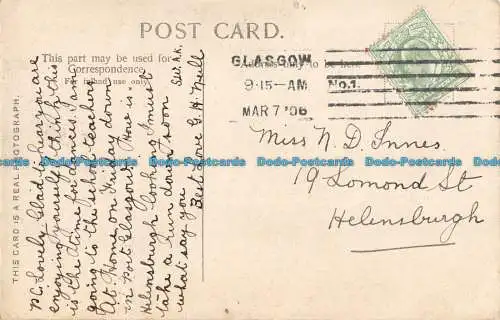 POST CARD.
This part may be used for
Correspondence
For inland use only
THIS CARD IS A REAL PHOTOGRAPH.
GLASGOW
9.15-AM
MAR 7 '06
No.1.
PC. lovely. Glad to hear you are
enjoying yourself. I think this
is the time for dances. I am
going to the school teachers
At Home on Friday down
in Port Glasgow. How is
Helensburgh looking I must
take a run down soon
what say you
Best love G. H. Neill
Miss N. D. Innes.
19 Lomond St
Helensburgh
Dodo-Postcards Dodo-Postcards Dodo-Postcards Dodo-Postcards Dodo-Postcards